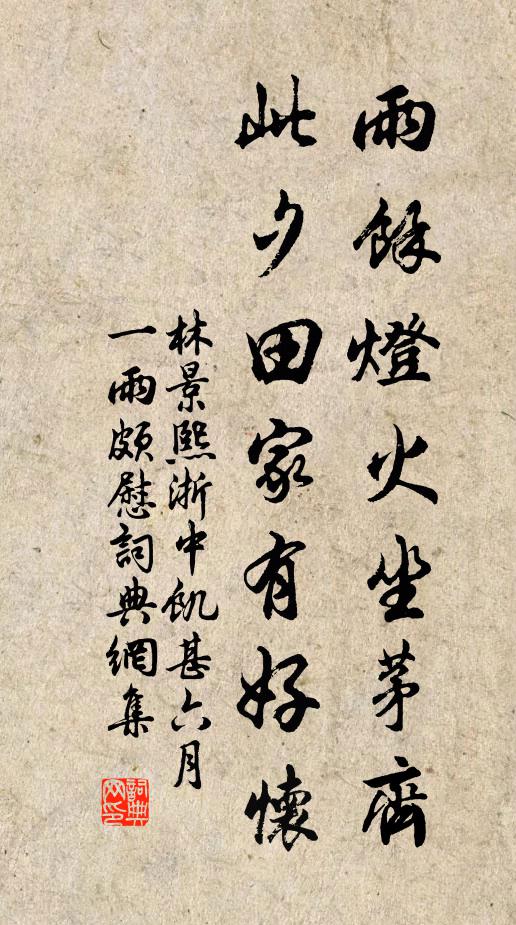 雨餘燈火坐茅齋
此夕田家有好懷
林景熙浙中飢甚六月
一雨頗慰詞典網集
詞典
网印